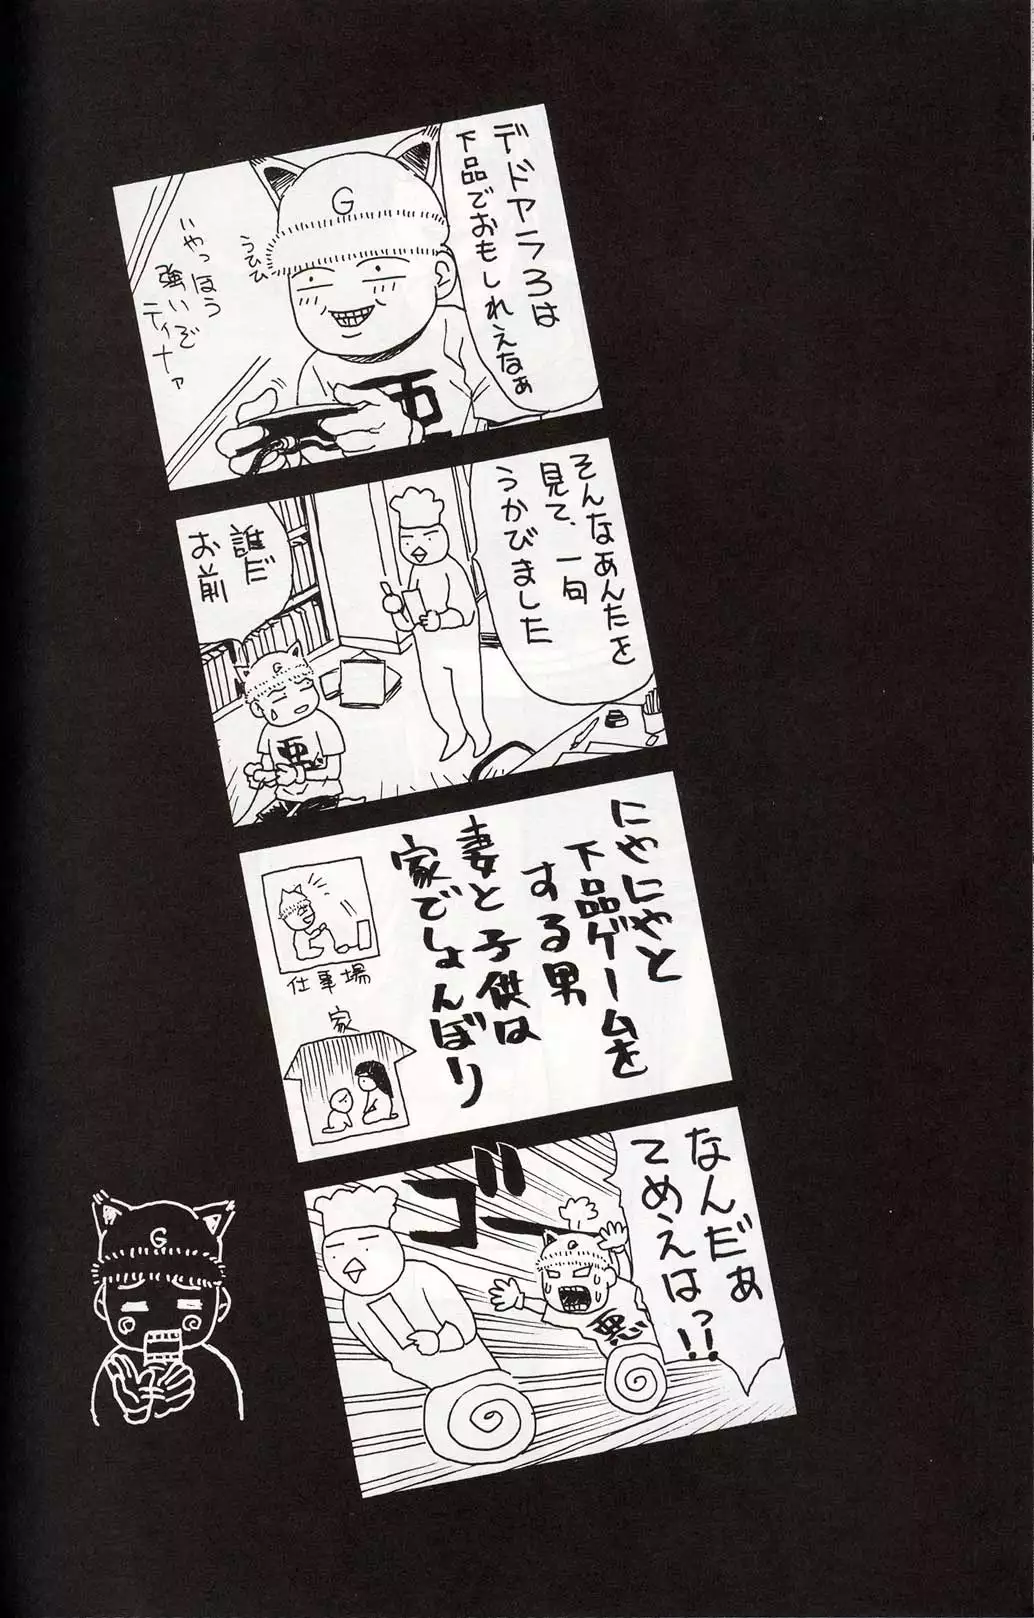 デドアラ3は
下品でおもしれえなぁ
G
うひひ
いやっほう
強いぞ
ティナァ
悪
そんなあんたを
見て、一句
うかびました
誰だ
お前
G
悪
にやにやと
下品ゲームを
する男
妻と子供は
家でしょんぼり
仕事場
家
なんだぁ
てめえはっ!!
ゴー
G
悪
G